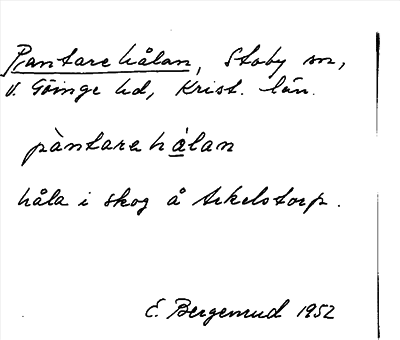 Pantarehålan, Stoby sn,
V. Göinge hd, Krist. län.
pàntarehålan
håla i skog å Arkelstorp.
E. Bergemrud 1952